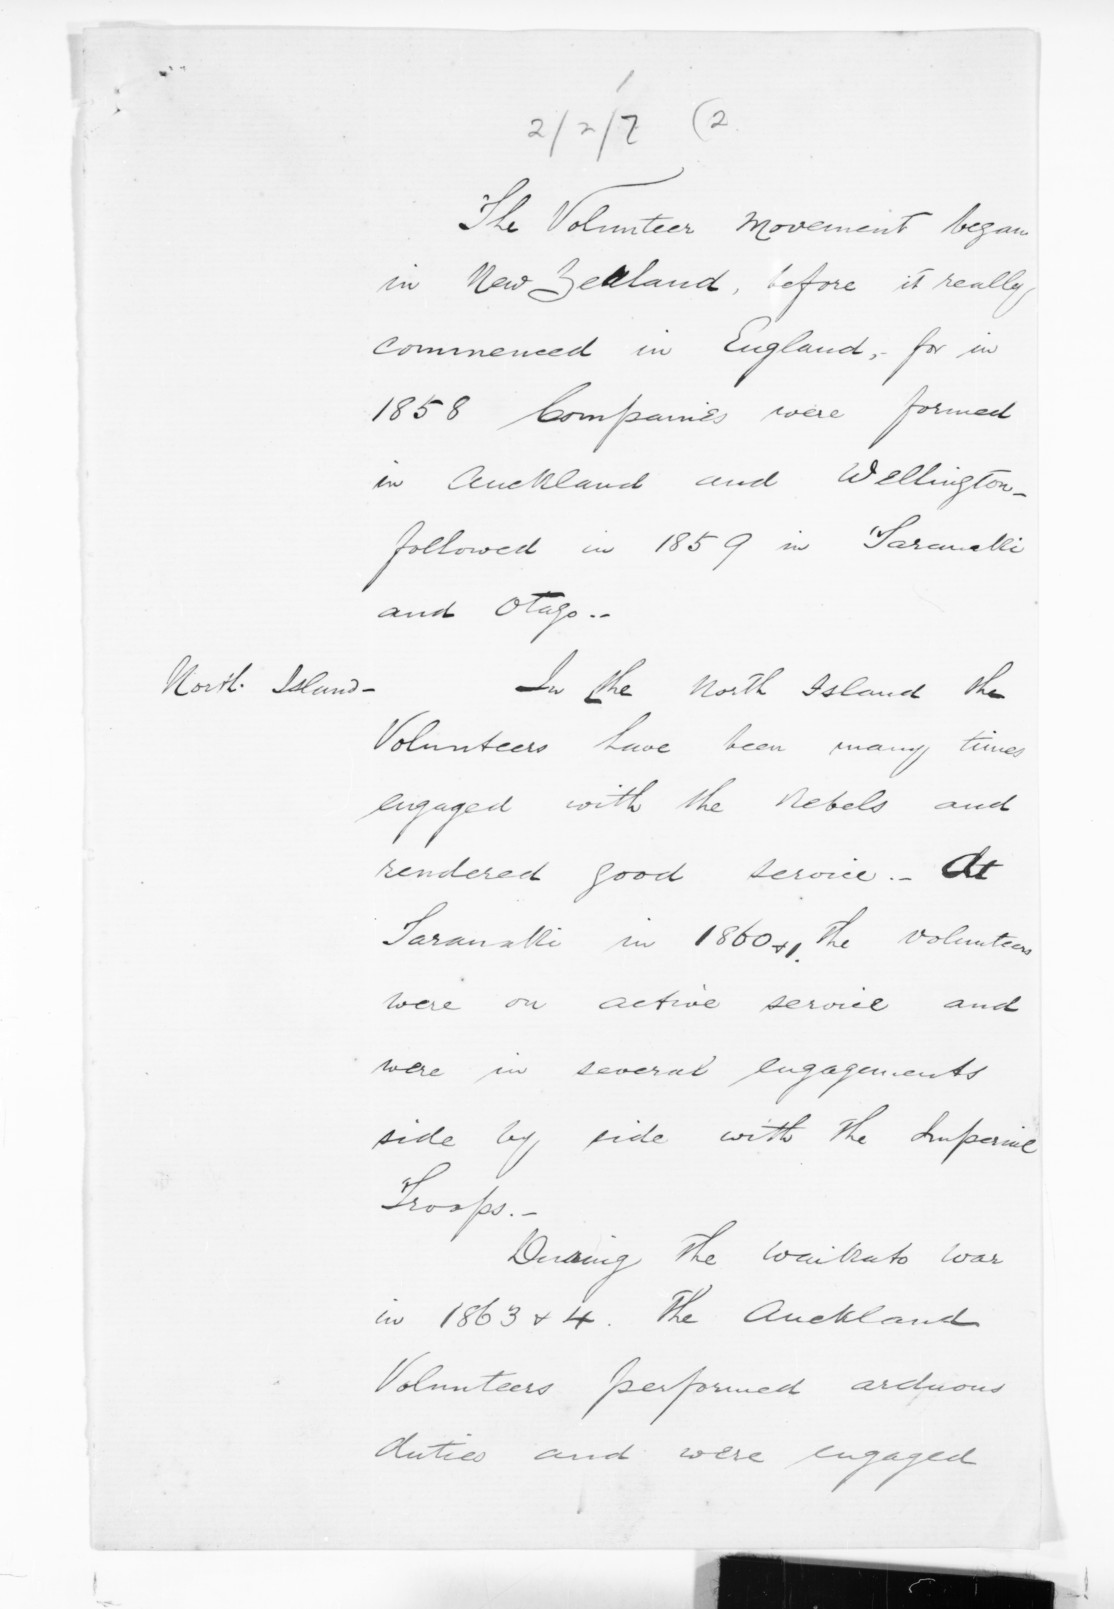 2/2/7 (2
The Volunteer Movement began
in New Zealand, before it really
commenced in England,- for in
1858 Companies were formed
in Auckland and Wellington-
followed in 1859 in Taranaki
and Otago.-
North Island- In the North Island the
Volunteers have been many times
engaged with the Rebels and
rendered good service.- At
Taranaki in 1860+1. the volunteers
were on active service and
were in several engagements
side by side with the Imperial
Troops.-
During the Waikato War
in 1863 + 4. the Auckland
Volunteers performed arduous
duties and were engaged